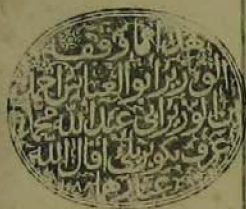 هذا مما وقفه
الوزير ابو العباس احمد
ابن الوزير ابى عبد الله محمد
عرف بكوبريلى اقال الله
عثارهما